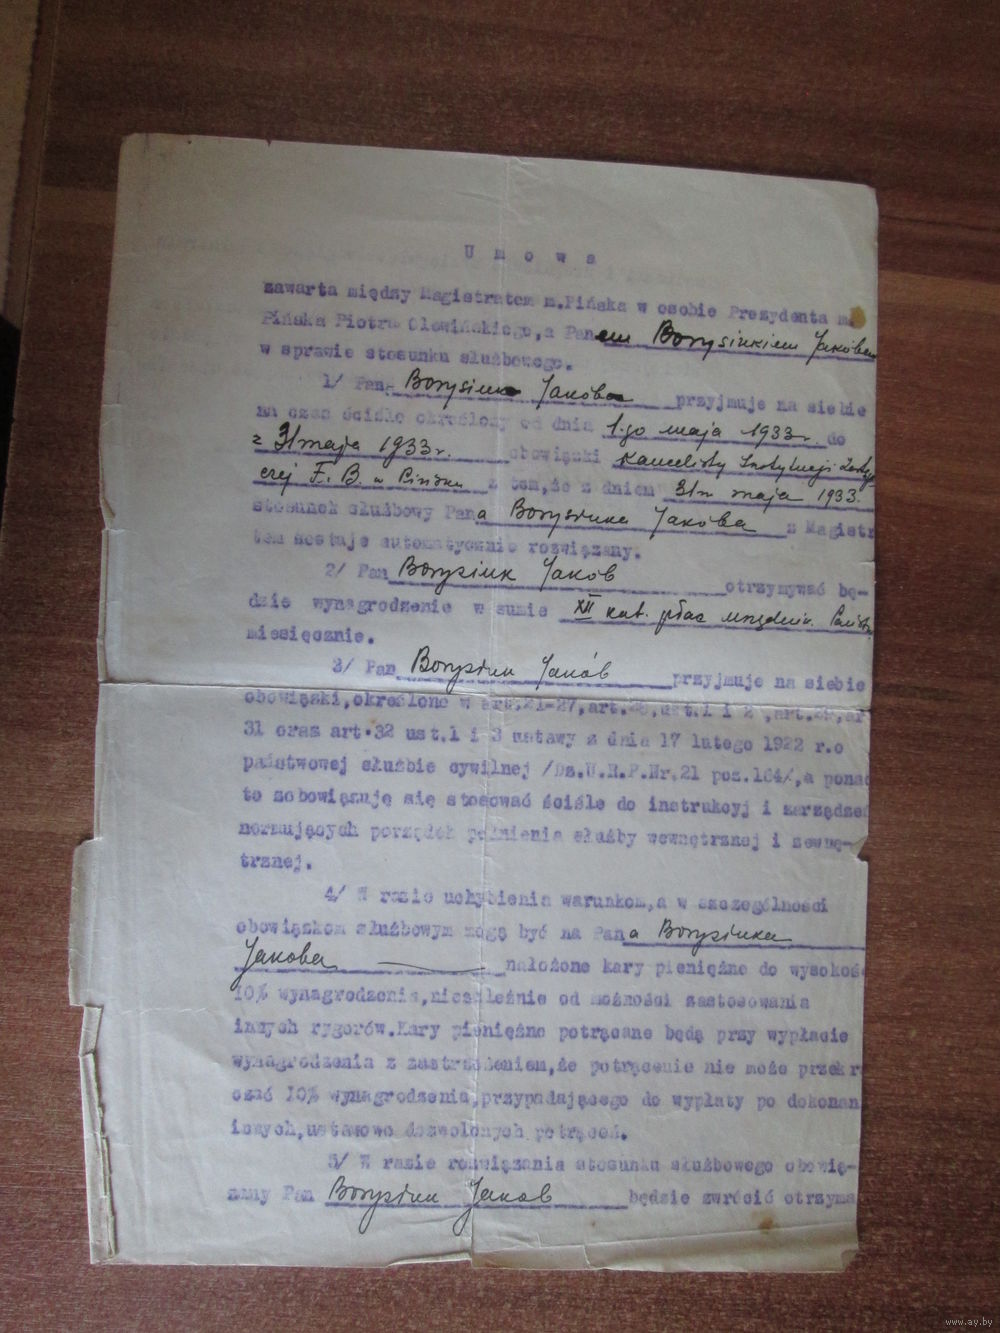 U m o w a
zawarta między Magistratem m.Pińska w osobie Prezydenta m.
Pińska Piotra Olewińskiego,a Panem Borysiukiem Jakóbem
w sprawie stosunku służbowego.
1/ Pan Borysiuk Jakób przyjmuje na siebie
na czas ściśle określony od dnia 1.go maja 1933 r. do
31 maja 1933 r. obowiązki Kancelisty Instytucji
F. B. w Pińsku z tem,że z dniem 31 maja 1933.
stosunek służbowy Pana Borysiuka Jakóba z Magistr
tem zostaje automatycznie rozwiązany.
2/ Pan Borysiuk Jakób otrzymywać bę-
dzie wynagrodzenie w sumie XII kat. płac urzędnik. Państ
miesięcznie.
3/ Pan Borysiuk Jakób przyjmuje na siebie
obowiązki,określone w art.21-27,art.28,ust.1 i 2 ,art.29,ar
31 oraz art.32 ust.1 i 3 ustawy z dnia 17 lutego 1922 r.o
państwowej służbie cywilnej /Dz.U.R.P.Nr.21 poz.164/,a ponad
to zobowiązuję się stosować ściśle do instrukcyj i zarządzeń
normujących porządek pełnienia służby wewnętrznej i zewnę-
trznej.
4/ W razie uchybienia warunkom,a w szczególności
obowiązkom służbowym mogą być na Pana Borysiuka
Jakóba nałożone kary pieniężne do wysokoś
10% wynagrodzenia,niezależnie od możności zastosowania
innych rygorów.Kary pieniężne potrącane będą przy wypłacie
wynagrodzenia z zastrzeżeniem,że potrącenie nie może przekr
czać 10% wynagrodzenia,przypadającego do wypłaty po dokonan
innych,ustawowo dozwolonych potrąceń.
5/ W razie rozwiązania stosunku służbowego obowią-
zany Pan Borysiuk Jakób będzie zwrócić otrzyma
www.ay.by